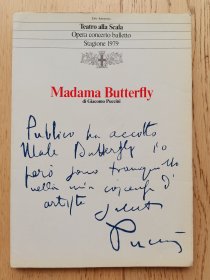 Teatro alla Scala
Opera concerto balletto
Stagione 1979
Madama Butterfly
di Giacomo Puccini
Publico ha accolto
Male Butterfly Io
però sono tranquillo
nella mia coscienza d'
artista Saluti
Puccini